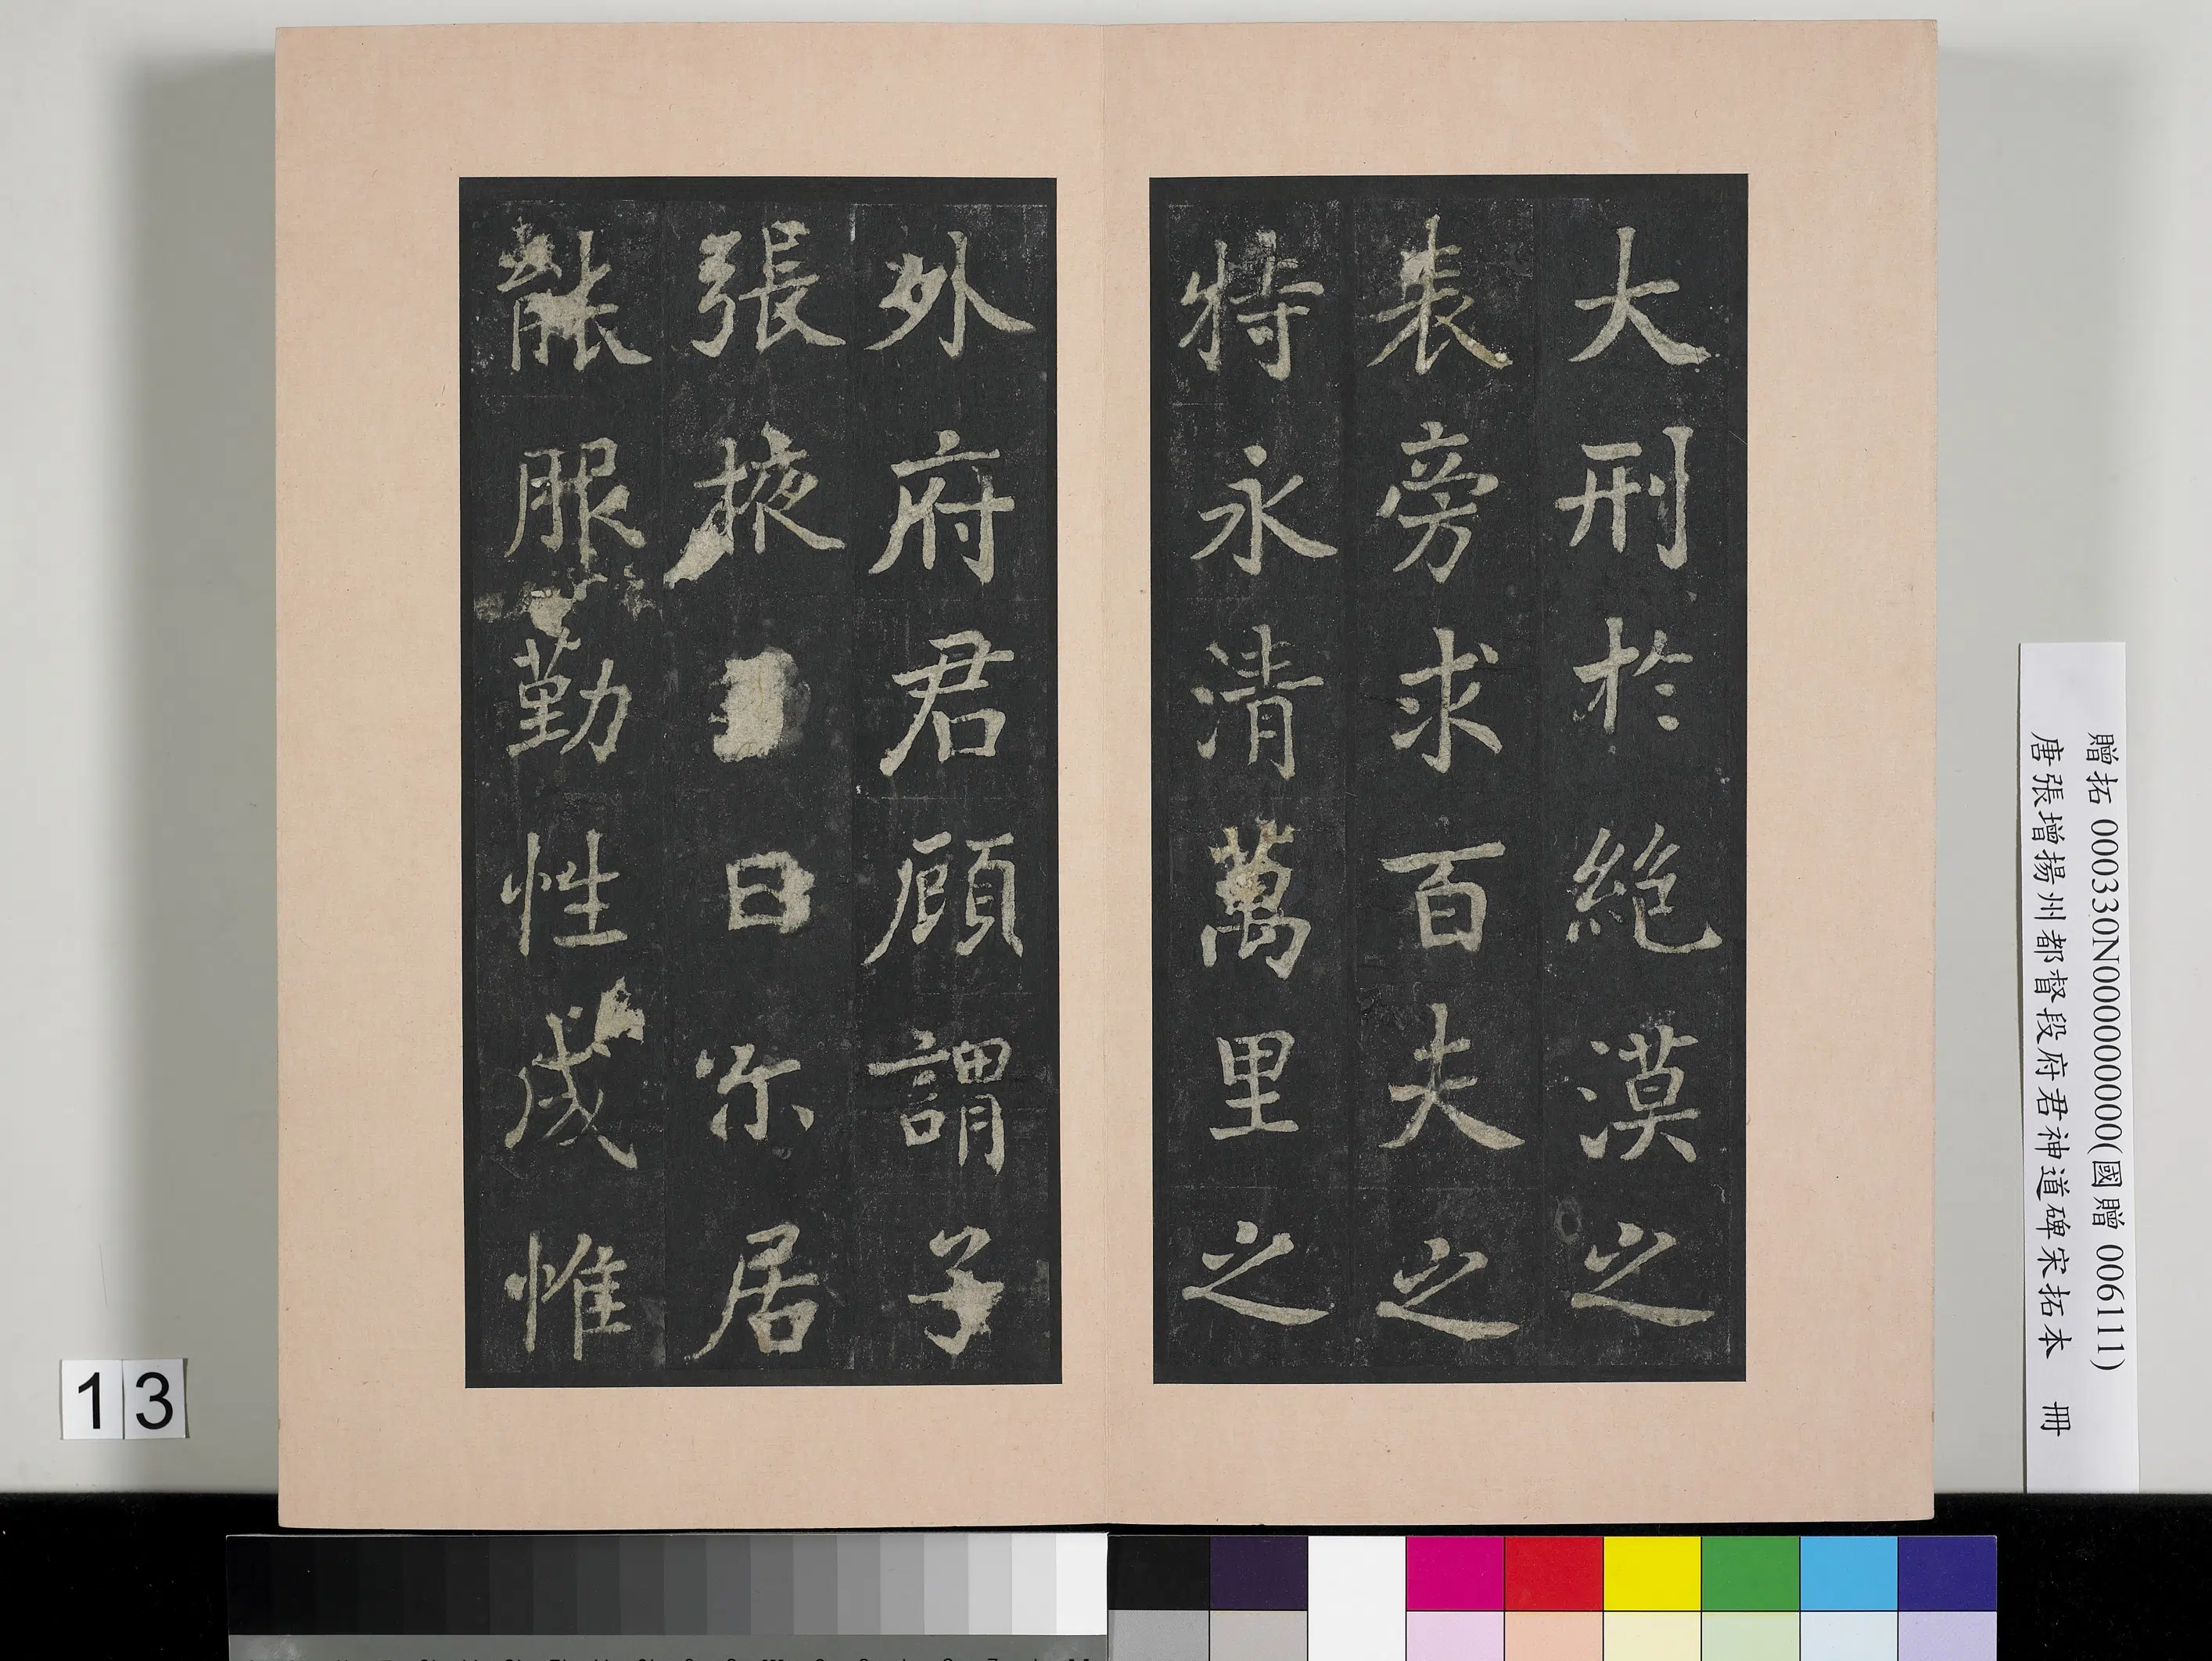 大刑於絕漠之
表旁求百夫之
特永清萬里之
外府君顧謂子
張掖曰尒居
能服勤性成惟
贈拓 000330N000000000(國贈 006111)
唐張增揚州都督段府君神道碑宋拓本 冊
13